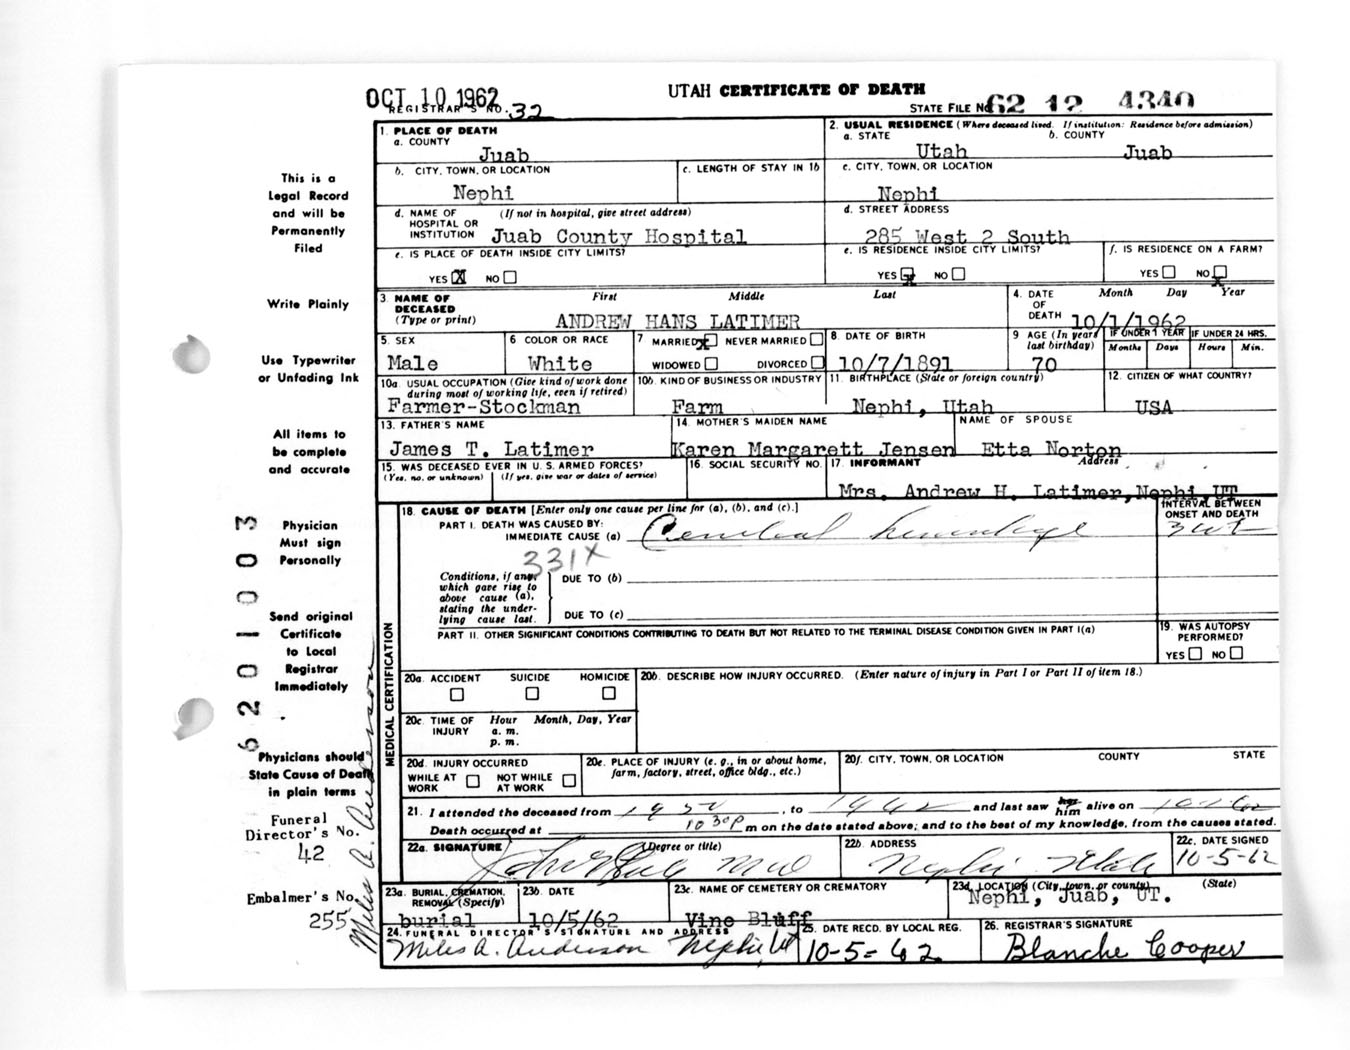 OCT 10 1962
UTAH CERTIFICATE OF DEATH
REGISTRAR'S NO. 32
STATE FILE NO. 62 12 4340
1. PLACE OF DEATH
a. COUNTY
Juab
2. USUAL RESIDENCE (Where deceased lived. If institution: Residence before admission)
a. STATE b. COUNTY
Utah Juab
b. CITY, TOWN, OR LOCATION c. LENGTH OF STAY IN 1b
Nephi
c. CITY, TOWN, OR LOCATION
Nephi
d. NAME OF HOSPITAL OR INSTITUTION (If not in hospital, give street address)
Juab County Hospital
d. STREET ADDRESS
285 West 2 South
e. IS PLACE OF DEATH INSIDE CITY LIMITS?
YES X NO
e. IS RESIDENCE INSIDE CITY LIMITS? f. IS RESIDENCE ON A FARM?
YES X NO YES NO X
3. NAME OF DECEASED (Type or print)
First Middle Last
ANDREW HANS LATIMER
4. DATE OF DEATH Month Day Year
10/1/1962
5. SEX
Male
6 COLOR OR RACE
White
7 MARRIED X NEVER MARRIED
WIDOWED DIVORCED
8. DATE OF BIRTH
10/7/1891
9 AGE (In years last birthday)
70
IF UNDER 1 YEAR IF UNDER 24 HRS.
Months Days Hours Min.
10a. USUAL OCCUPATION (Give kind of work done during most of working life, even if retired)
Farmer-Stockman
10b. KIND OF BUSINESS OR INDUSTRY
Farm
11. BIRTHPLACE (State or foreign country)
Nephi, Utah
12. CITIZEN OF WHAT COUNTRY?
USA
13. FATHER'S NAME
James T. Latimer
14. MOTHER'S MAIDEN NAME
Karen Margarett Jensen
NAME OF SPOUSE
Etta Norton
15. WAS DECEASED EVER IN U. S. ARMED FORCES?
(Yes, no, or unknown) (If yes, give war or dates of service)
16. SOCIAL SECURITY NO.
17. INFORMANT Address
Mrs. Andrew H. Latimer, Nephi, UT
MEDICAL CERTIFICATION
18. CAUSE OF DEATH [Enter only one cause per line for (a), (b), and (c).]
INTERVAL BETWEEN ONSET AND DEATH
PART I. DEATH WAS CAUSED BY:
IMMEDIATE CAUSE (a) Cerebral hemorrhage
331X
Conditions, if any, which gave rise to above cause (a), stating the underlying cause last.
DUE TO (b)
DUE TO (c)
PART II. OTHER SIGNIFICANT CONDITIONS CONTRIBUTING TO DEATH BUT NOT RELATED TO THE TERMINAL DISEASE CONDITION GIVEN IN PART I(a)
19. WAS AUTOPSY PERFORMED?
YES NO
20a. ACCIDENT SUICIDE HOMICIDE
20b. DESCRIBE HOW INJURY OCCURRED. (Enter nature of injury in Part I or Part II of item 18.)
20c. TIME OF INJURY Hour Month, Day, Year
a. m.
p. m.
20d. INJURY OCCURRED
WHILE AT WORK NOT WHILE AT WORK
20e. PLACE OF INJURY (e. g., in or about home, farm, factory, street, office bldg., etc.)
20f. CITY, TOWN, OR LOCATION COUNTY STATE
21. I attended the deceased from , to 1962 and last saw her him alive on
Death occurred at 10 30 p m on the date stated above; and to the best of my knowledge, from the causes stated.
22a. SIGNATURE (Degree or title)
MD
22b. ADDRESS
Nephi Utah
22c. DATE SIGNED
10-5-62
23a. BURIAL, CREMATION, REMOVAL (Specify)
burial
23b. DATE
10/5/62
23c. NAME OF CEMETERY OR CREMATORY
Vine Bluff
23d. LOCATION (City, town, or county) (State)
Nephi, Juab, UT.
24. FUNERAL DIRECTOR'S SIGNATURE AND ADDRESS
Miles A. Anderson Nephi, Ut
25. DATE RECD. BY LOCAL REG.
10-5-62
26. REGISTRAR'S SIGNATURE
Blanche Cooper
This is a
Legal Record
and will be
Permanently
Filed
Write Plainly
Use Typewriter
or Unfading Ink
All items to
be complete
and accurate
Physician
Must sign
Personally
Send original
Certificate
to Local
Registrar
Immediately
Physicians should
State Cause of Death
in plain terms
Funeral
Director's No.
42
Embalmer's No.
255
Miles A. Anderson
6201003